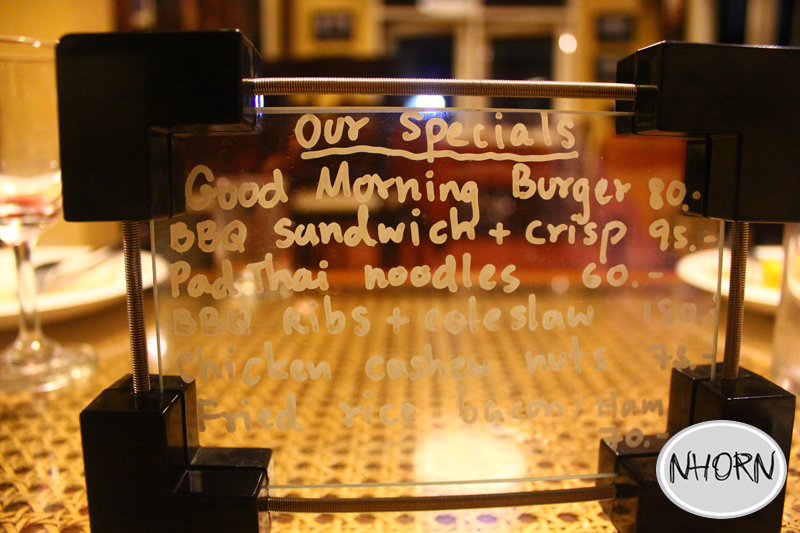 Our Specials
Good Morning Burger 80.-
BBQ sandwich + crisp 95.-
Pad Thai noodles 60.-
BBQ Ribs + coleslaw 180.-
Chicken cashew nuts 75.-
Fried rice bacon/Ham
70.-
NHORN